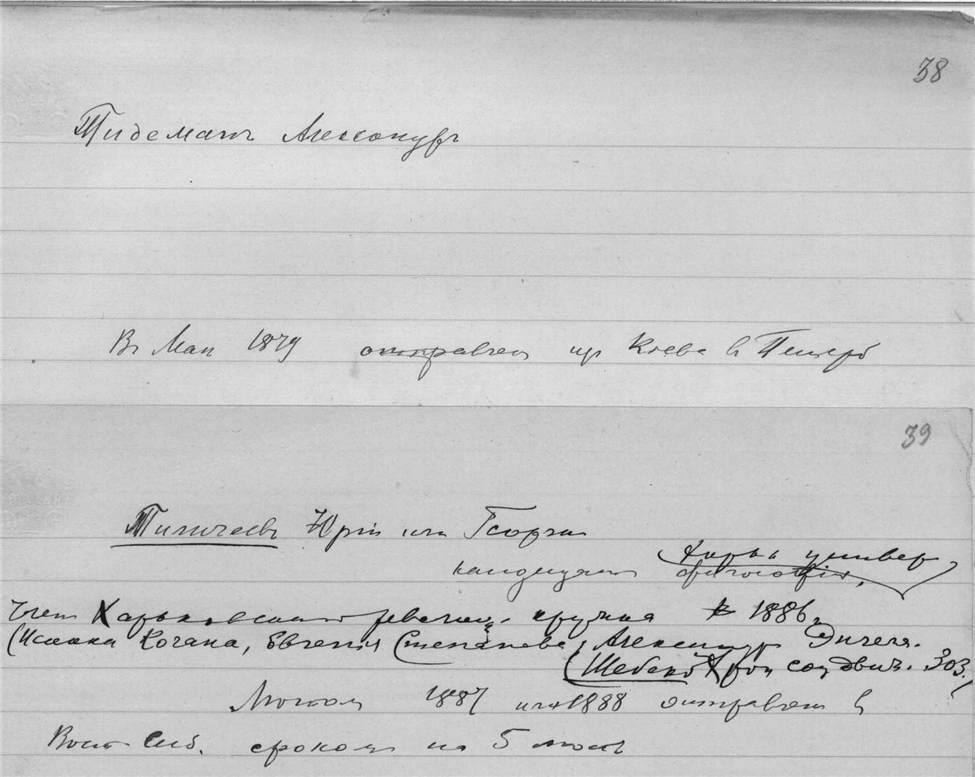 38
Тидеманъ Александръ
В Мае 1879 отправлен из Киева в Петерб
39
Тиличеевъ Юрій или Георгій
Харьк универ
кандидат филологіи,
Член Харьковскаго револ. кружка в 1886.
(Исаака Когана, Евгенія Степанова, Александр Энгеля.
(Шебеко Хрон соц движ. 303.)
1887 или 1888 отправлен в
Вост Сиб. сроком на 5 лет